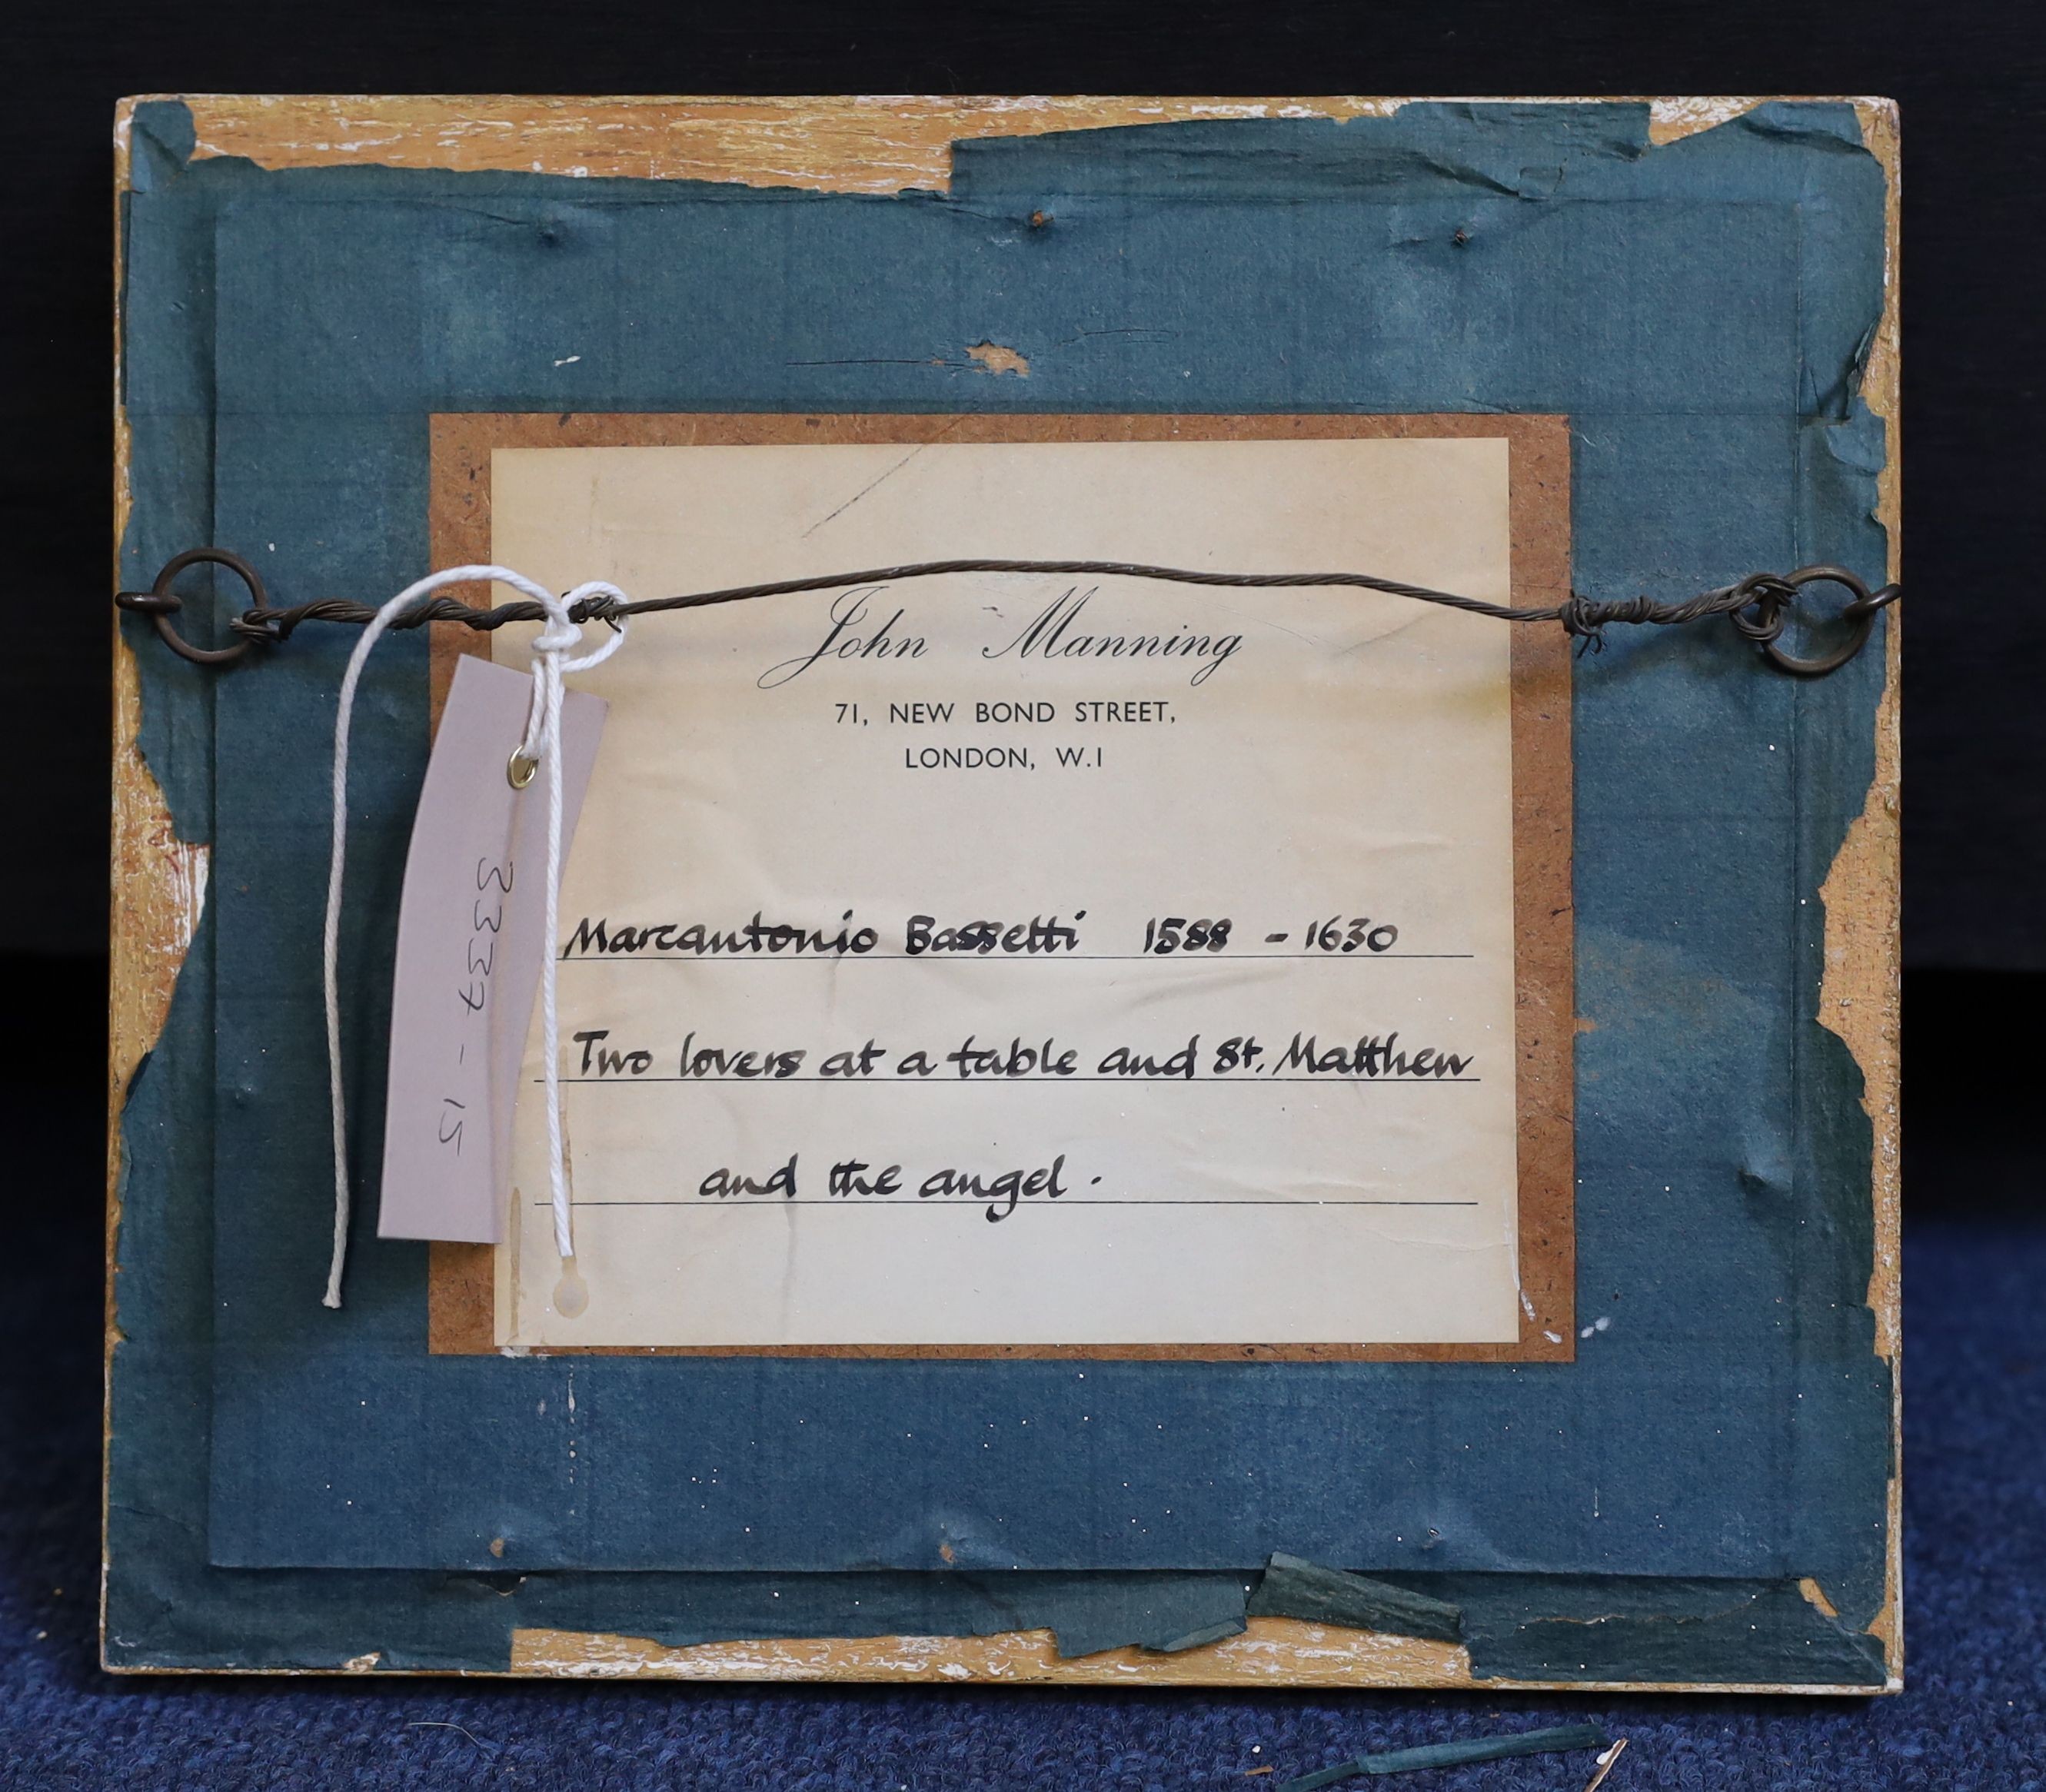 John Manning
71, NEW BOND STREET,
LONDON, W.1
Marcantonio Bassetti 1588 - 1630
Two lovers at a table and St. Matthew
and the angel.
3337 - 15